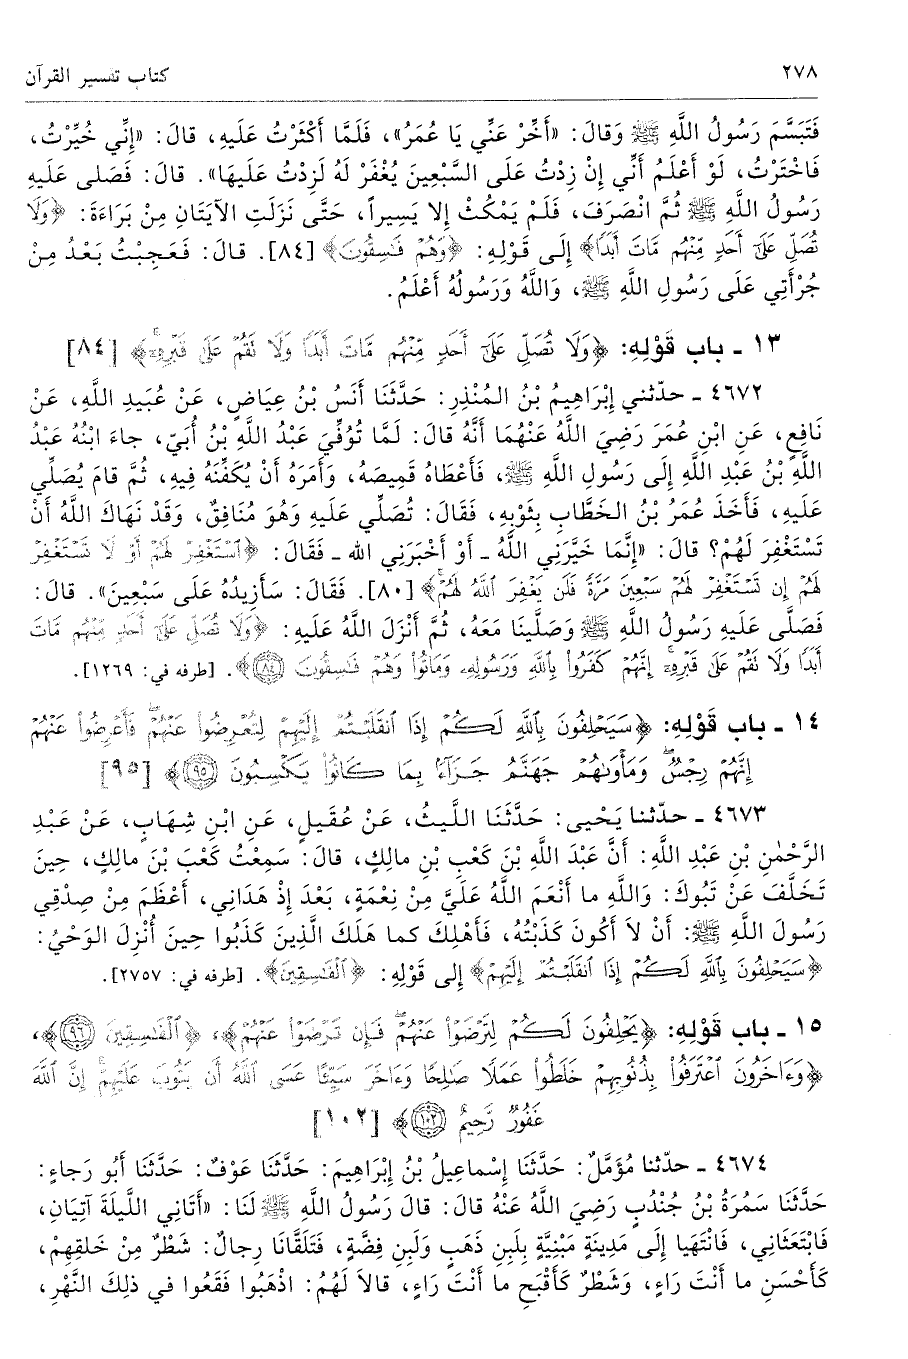 ٢٧٨ كتاب تفسير القرآن
فَتَبَسَّمَ رَسُولُ اللَّهِ ﷺ وَقالَ: «أَخِّرْ عَنِّي يَا عُمَرُ»، فَلَمَّا أَكْثَرْتُ عَلَيهِ، قالَ: «إِنِّي خُيِّرْتُ،
فَاخْتَرْتُ، لَوْ أَعْلَمُ أَنِّي إِنْ زِدْتُ عَلَى السَّبْعِينَ يُغْفَرْ لَهُ لَزِدْتُ عَلَيهَا». قالَ: فَصَلى عَلَيهِ
رَسُولُ اللَّهِ ﷺ ثُمَّ انْصَرَفَ، فَلَمْ يَمْكُثْ إِلا يَسِيراً، حَتَّى نَزَلَتِ الآيَتَانِ مِنْ بَرَاءَةَ: ﴿وَلَا
تُصَلِّ عَلَىٰٓ أَحَدٍ مِّنْهُم مَّاتَ أَبَدًا﴾ إِلَى قَوْلِهِ: ﴿وَهُمْ فَٰسِقُونَ﴾ [٨٤]. قالَ: فَعَجِبْتُ بَعْدُ مِنْ
جُرْأَتِي عَلَى رَسُولِ اللَّهِ ﷺ، وَاللَّهُ وَرَسُولُهُ أَعْلَمُ.
١٣ ـ باب قَوْلِهِ: ﴿وَلَا تُصَلِّ عَلَىٰٓ أَحَدٍ مِّنْهُم مَّاتَ أَبَدًا وَلَا نَقُمْ عَلَىٰ قَبْرِهِۦٓ﴾ [٨٤]
٤٦٧٢ ـ حدّثني إِبْرَاهِيمُ بْنُ المُنْذِرِ: حَدَّثَنَا أَنَسُ بْنُ عِيَاضٍ، عَنْ عُبَيدِ اللَّهِ، عَنْ
نَافِعٍ، عَنِ ابْنِ عُمَرَ رَضِيَ اللَّهُ عَنْهُمَا أَنَّهُ قالَ: لَمَّا تُوُفِّيَ عَبْدُ اللَّهِ بْنُ أُبَيٍّ، جاءَ ابْنُهُ عَبْدُ
اللَّهِ بْنُ عَبْدِ اللَّهِ إِلَى رَسُولِ اللَّهِ ﷺ، فَأَعْطَاهُ قَمِيصَهُ، وَأَمَرَهُ أَنْ يُكَفِّنَهُ فِيهِ، ثُمَّ قامَ يُصَلِّي
عَلَيهِ، فَأَخَذَ عُمَرُ بْنُ الخَطَّابِ بِثَوْبِهِ، فَقَالَ: تُصَلِّي عَلَيهِ وَهُوَ مُنَافِقٌ، وَقَدْ نَهَاكَ اللَّهُ أَنْ
تَسْتَغْفِرَ لَهُمْ؟ قالَ: «إِنَّمَا خَيَّرَنِي اللَّهُ ـ أَوْ أَخْبَرَنِي الله ـ فَقَالَ: ﴿ٱسْتَغْفِرْ لَهُمْ أَوْ لَا تَسْتَغْفِرْ
لَهُمْ إِن تَسْتَغْفِرْ لَهُمْ سَبْعِينَ مَرَّةً فَلَن يَغْفِرَ ٱللَّهُ لَهُمْ﴾ [٨٠]. فَقَالَ: سَأَزِيدُهُ عَلَى سَبْعِينَ». قالَ:
فَصَلَّى عَلَيهِ رَسُولُ اللَّهِ ﷺ وَصَلَّينَا مَعَهُ، ثُمَّ أَنْزَلَ اللَّهُ عَلَيهِ: ﴿وَلَا تُصَلِّ عَلَىٰٓ أَحَدٍ مِّنْهُم مَّاتَ
أَبَدًا وَلَا نَقُمْ عَلَىٰ قَبْرِهِۦٓ إِنَّهُمْ كَفَرُوا۟ بِٱللَّهِ وَرَسُولِهِۦ وَمَاتُوا۟ وَهُمْ فَٰسِقُونَ ۝٨٤﴾. [طرفه في: ١٢٦٩].
١٤ ـ باب قَوْلِهِ: ﴿سَيَحْلِفُونَ بِٱللَّهِ لَكُمْ إِذَا ٱنقَلَبْتُمْ إِلَيْهِمْ لِتُعْرِضُوا۟ عَنْهُمْ فَأَعْرِضُوا۟ عَنْهُمْ
إِنَّهُمْ رِجْسٌ وَمَأْوَىٰهُمْ جَهَنَّمُ جَزَآءًۢ بِمَا كَانُوا۟ يَكْسِبُونَ ۝٩٥﴾ [٩٥]
٤٦٧٣ ـ حدّثنا يَحْيى: حَدَّثَنَا اللَّيثُ، عَنْ عُقَيلٍ، عَنِ ابْنِ شِهَابٍ، عَنْ عَبْدِ
الرَّحْمٰنِ بْنِ عَبْدِ اللَّهِ: أَنَّ عَبْدَ اللَّهِ بْنَ كَعْبِ بْنِ مالِكٍ، قالَ: سَمِعْتُ كَعْبَ بْنَ مالِكٍ، حِينَ
تَخَلَّفَ عَنْ تَبُوكَ: وَاللَّهِ ما أَنْعَمَ اللَّهُ عَلَيَّ مِنْ نِعْمَةٍ، بَعْدَ إِذْ هَدَانِي، أَعْظَمَ مِنْ صِدْقِي
رَسُولَ اللَّهِ ﷺ: أَنْ لاَ أَكُونَ كَذَبْتُهُ، فَأَهْلِكَ كما هَلَكَ الَّذِينَ كَذَبُوا حِينَ أُنْزِلَ الوَحْيُ:
﴿سَيَحْلِفُونَ بِٱللَّهِ لَكُمْ إِذَا ٱنقَلَبْتُمْ إِلَيْهِمْ﴾ إلى قَوْلِهِ: ﴿ٱلْفَٰسِقِينَ﴾. [طرفه في: ٢٧٥٧].
١٥ ـ باب قَوْلِهِ: ﴿يَحْلِفُونَ لَكُمْ لِتَرْضَوْا۟ عَنْهُمْ فَإِن تَرْضَوْا۟ عَنْهُمْ﴾، ﴿ٱلْفَٰسِقِينَ ۝٩٦﴾،
﴿وَءَاخَرُونَ ٱعْتَرَفُوا۟ بِذُنُوبِهِمْ خَلَطُوا۟ عَمَلًا صَٰلِحًا وَءَاخَرَ سَيِّئًا عَسَى ٱللَّهُ أَن يَتُوبَ عَلَيْهِمْ إِنَّ ٱللَّهَ
غَفُورٌ رَّحِيمٌ ۝١٠٢﴾ [١٠٢]
٤٦٧٤ ـ حدّثنا مُؤَمَّلٌ: حَدَّثَنَا إِسْماعِيلُ بْنُ إِبْرَاهِيمَ: حَدَّثَنَا عَوْفٌ: حَدَّثَنَا أَبُو رَجاءٍ:
حَدَّثَنَا سَمُرَةُ بْنُ جُنْدُبٍ رَضِيَ اللَّهُ عَنْهُ قالَ: قالَ رَسُولُ اللَّهِ ﷺ لَنَا: «أَتَانِي اللَّيلَةَ آتِيَانِ،
فَابْتَعَثَانِي، فَانْتَهَيا إِلَى مَدِينَةٍ مَبْنِيَّةٍ بِلَبِنِ ذَهَبٍ وَلَبِنِ فِضَّةٍ، فَتَلَقَّانَا رِجالٌ: شَطْرٌ مِنْ خَلقِهِمْ،
كَأَحْسَنِ ما أَنْتَ رَاءٍ، وَشَطْرٌ كَأَقْبَحِ ما أَنْتَ رَاءٍ، قالاَ لَهُمُ: اذْهَبُوا فَقَعُوا في ذلِكَ النَّهْرِ،